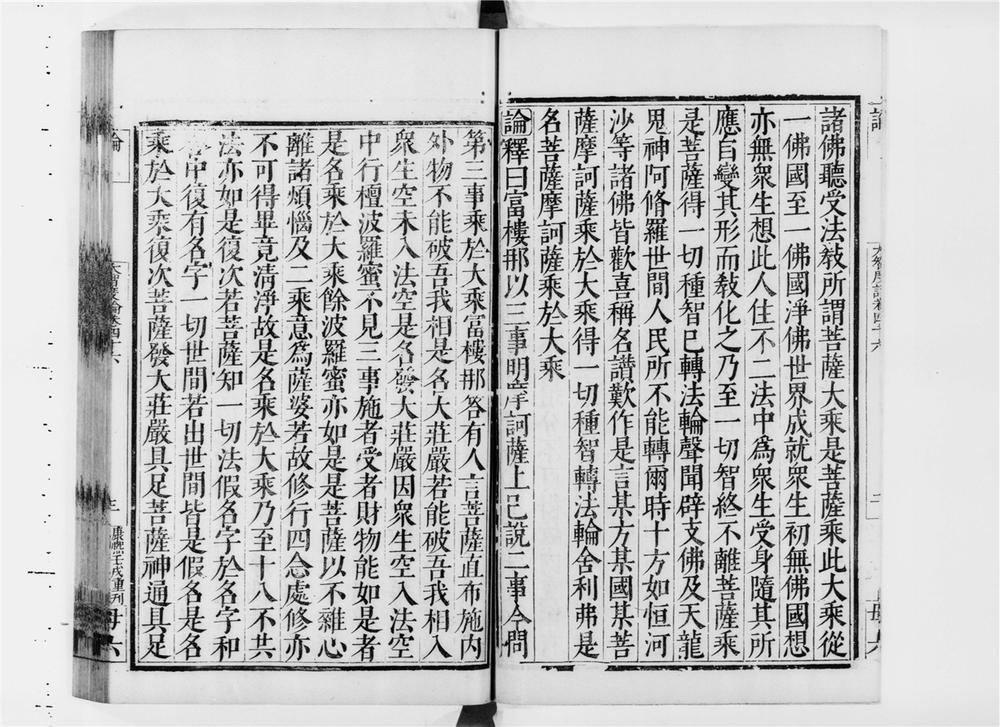 諸佛聽受法教所謂菩薩大乘是菩薩乘此大乘從
一佛國至一佛國淨佛世界成就衆生初無佛國想
亦無衆生想此人住不二法中爲衆生受身隨其所
應自變其形而教化之乃至一切智終不離菩薩乘
是菩薩得一切種智已轉法輪聲聞辟支佛及天龍
鬼神阿脩羅世間人民所不能轉爾時十方如恒河
沙等諸佛皆歡喜稱名讃歎作是言某方某國某菩
薩摩訶薩乘於大乘得一切種智轉法輪舍利弗是
名菩薩摩訶薩乘於大乘
論釋曰富樓那以三事明摩訶薩上已說二事今問
第三事乘於大乘富樓那答有人言菩薩直布施内
外物不能破吾我相是名大莊嚴若能破吾我相入
衆生空未入法空是名發大莊嚴因衆生空入法空
中行檀波羅蜜不見三事施者受者財物能如是者
是名乘於大乘餘波羅蜜亦如是是菩薩以不雜心
離諸煩惱及二乘意爲薩婆若故修行四念處修亦
不可得畢竟清淨故是名乘於大乘乃至十八不共
法亦如是復次若菩薩知一切法假名字於名字和
中復有名字一切世間若出世間皆是假名是名
乘於大乘復次菩薩發大莊嚴具足菩薩神通具足
論
大智度論卷四十六
三
康熙壬戌重刊
母六